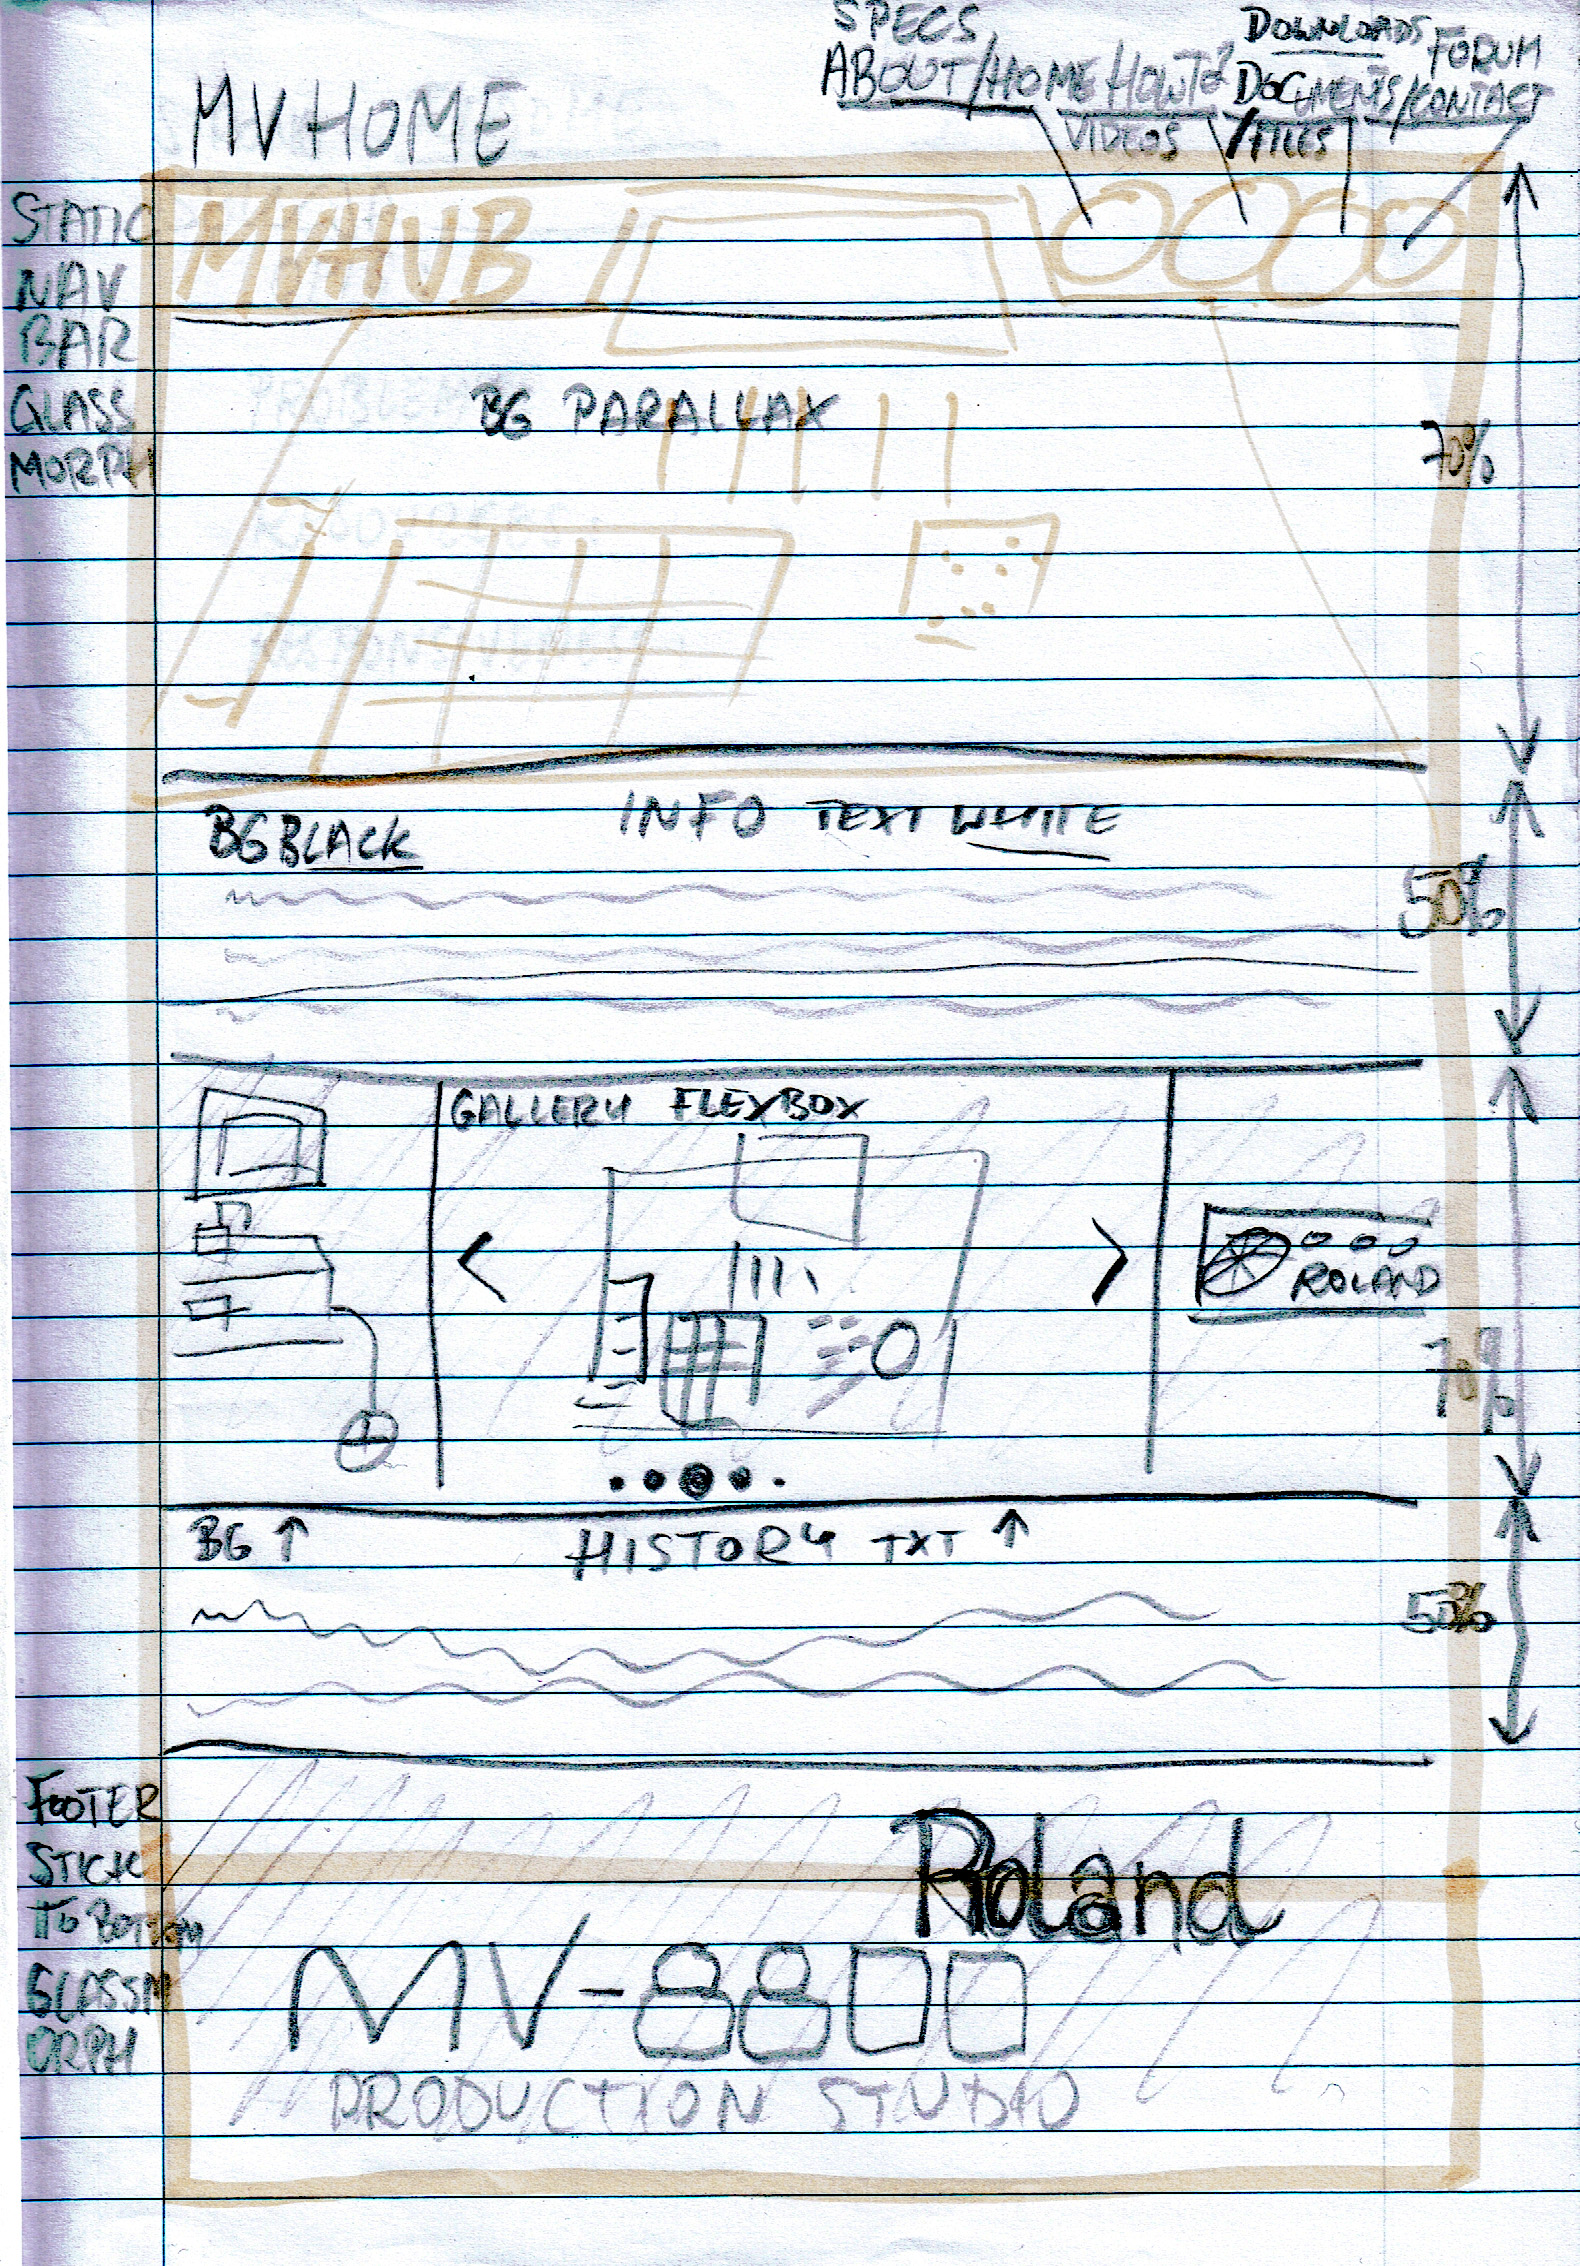 SPECS
ABOUT/HOME
HOWTO?
VIDEOS
DOWNLOADS
DOCUMENTS
/FILES
FORUM
/KONTACT
MVHOME
STATIC
NAV
BAR
GLASS
MORPH
MVHUB
BG PARALLAX
70%
BG BLACK
INFO TEXT WHITE
50%
GALLERY FLEXBOX
<
>
ROLAND
70%
BG ↑
HISTORY TXT ↑
50%
FOOTER
STICK
TO BOTTOM
GLASSM
ORPH
Roland
MV-8800
PRODUCTION STUDIO